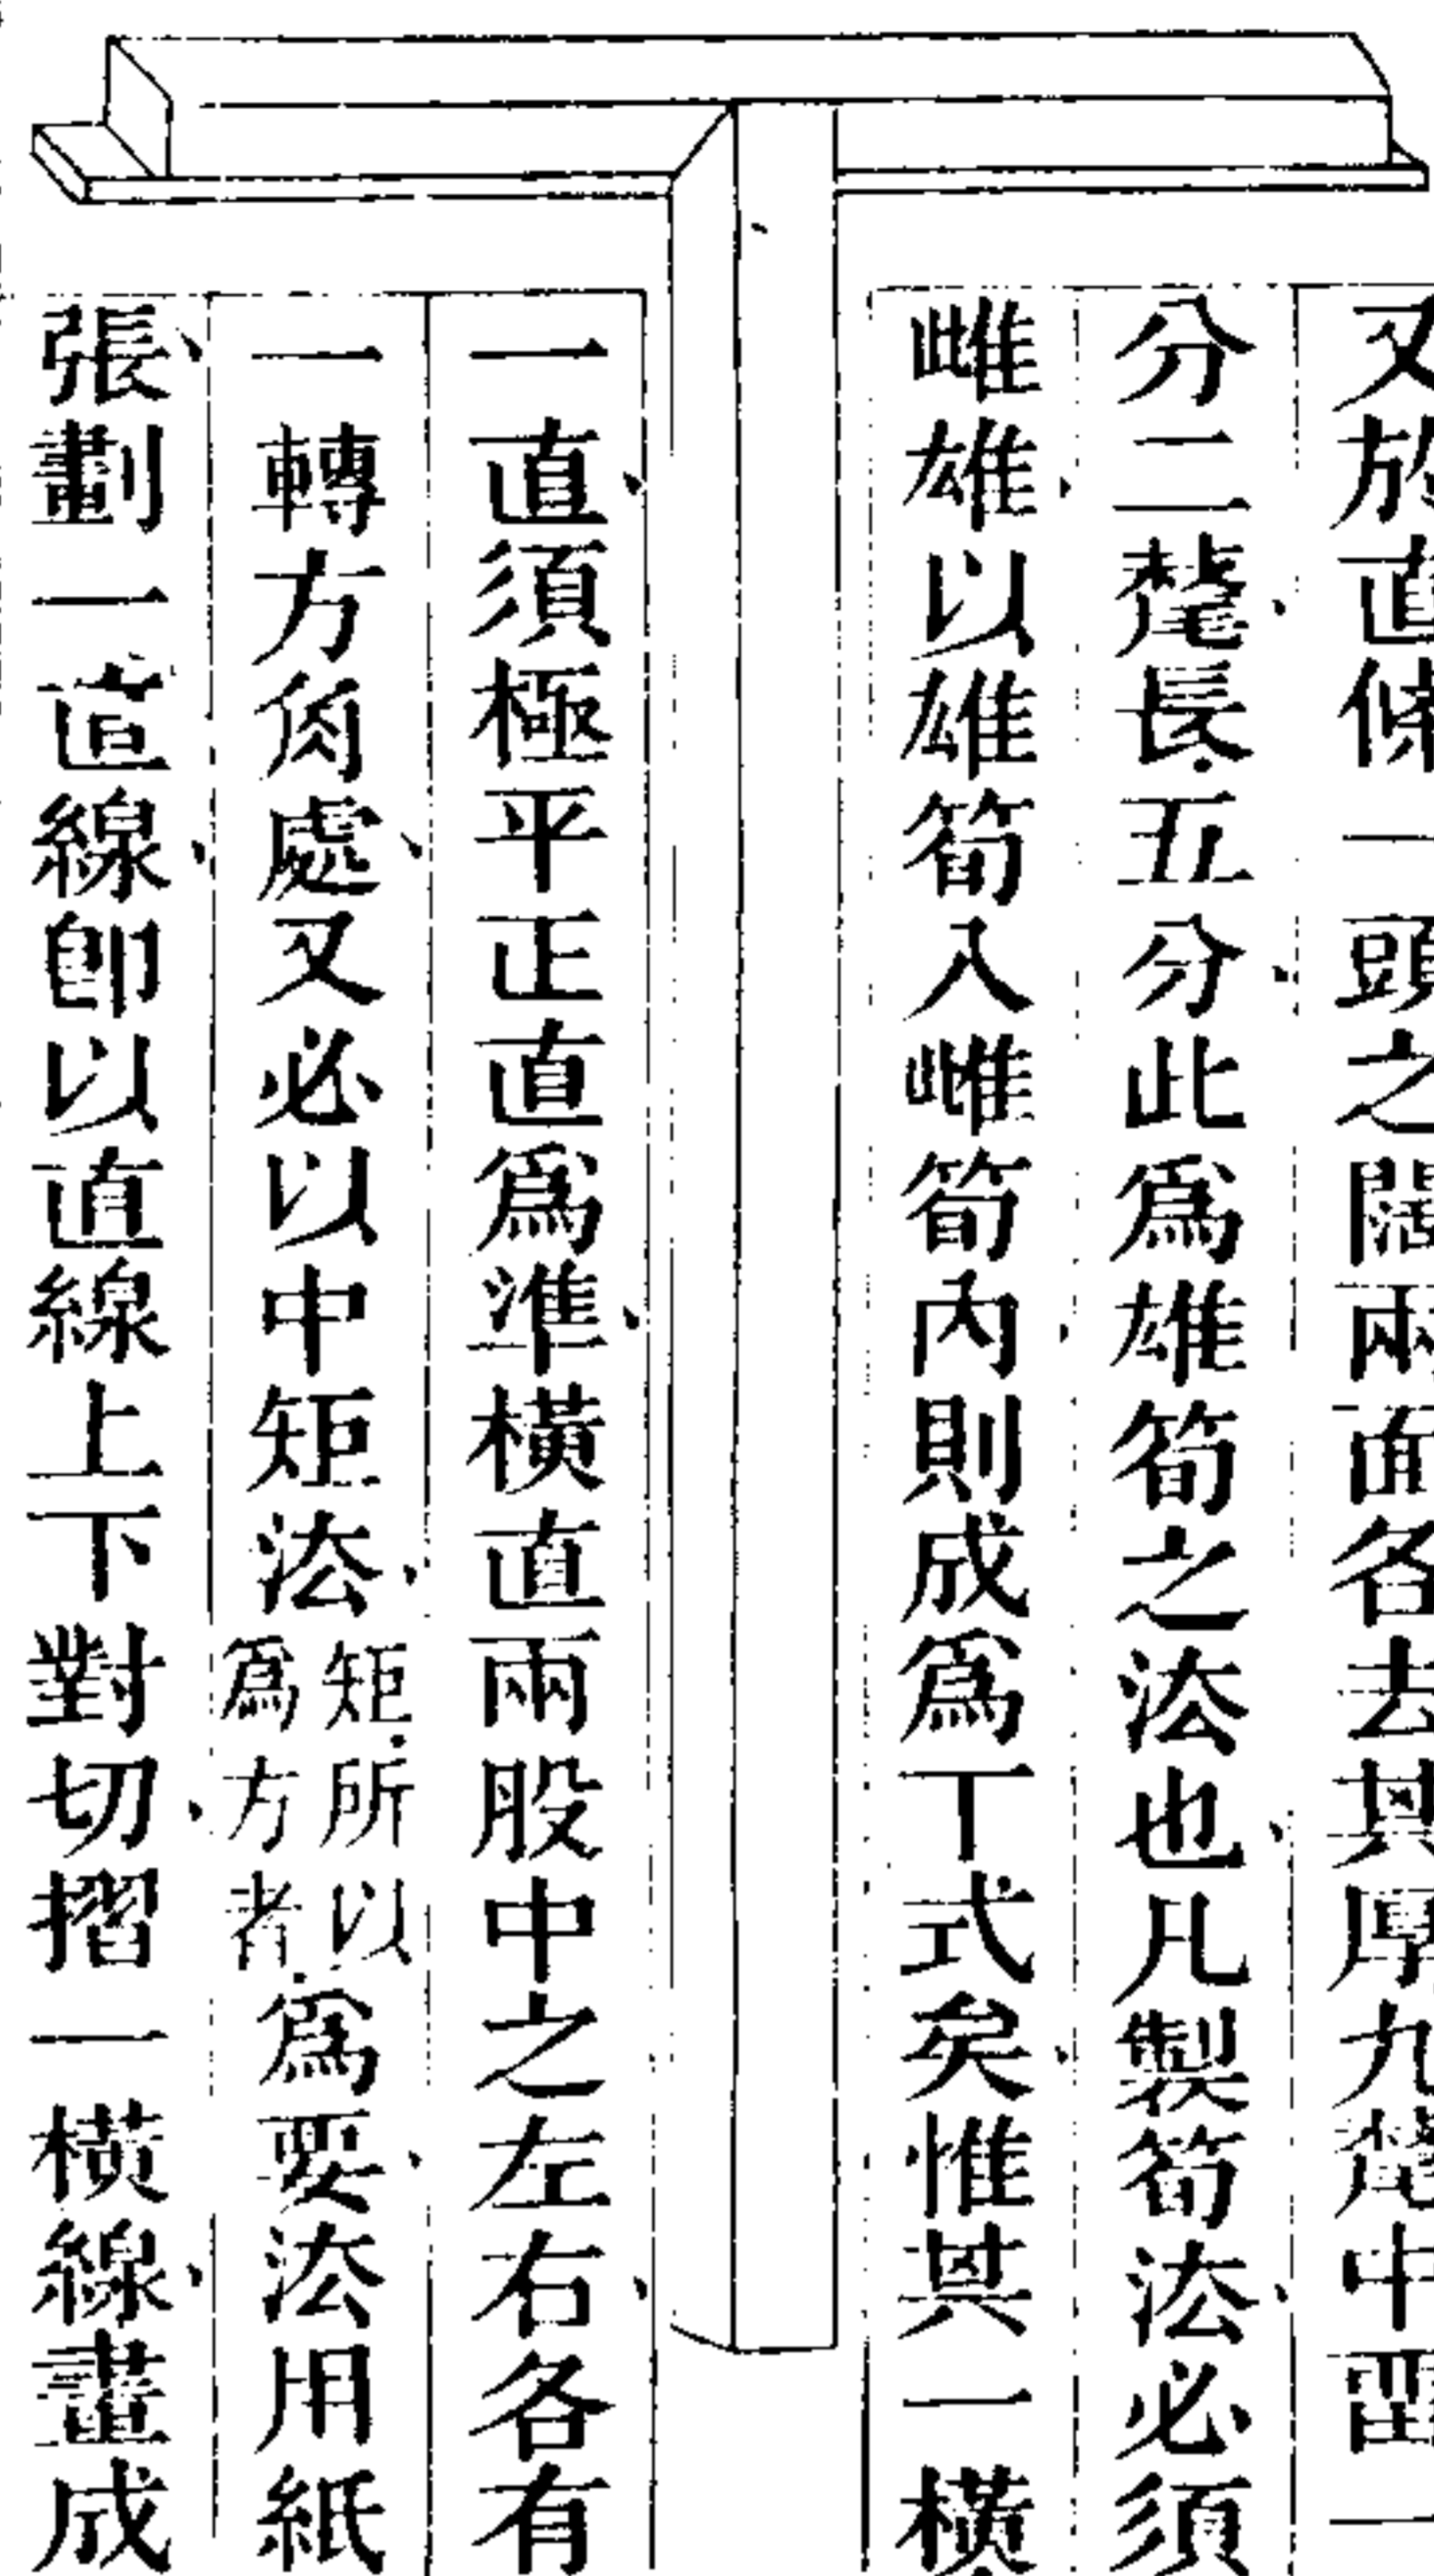 又於直條一頭之闊兩面各去其厚九氂中畱一
分二氂長五分此爲雄筍之法也凡製筍法必須
雌雄以雄筍入雌筍內則成爲丅式矣惟其一橫
一直須極平正直爲準橫直兩股中之左右各有
一轉方角處又必以中矩法矩所以爲方者爲要法用紙
張劃一直線卽以直線上下對切摺一橫線畫成